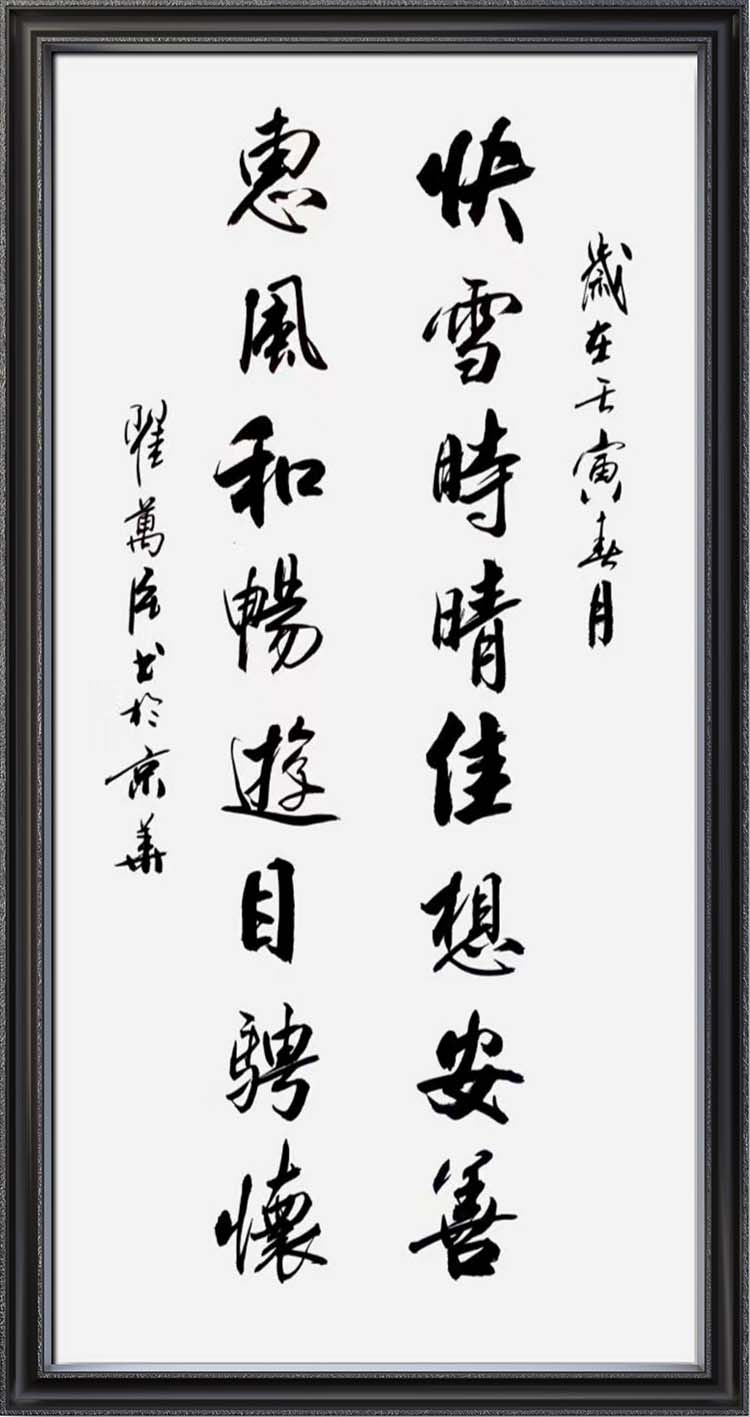 歲在壬寅春月
快雪時晴佳想安善
惠風和暢遊目騁懷
翟萬臣书於京華